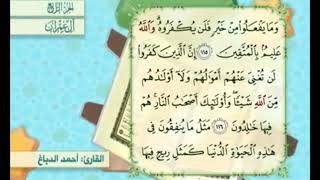 الجزء الرابع
آل عمران
وَمَا يَفْعَلُوا۟ مِنْ خَيْرٍ فَلَن يُكْفَرُوهُ وَٱللَّهُ
عَلِيمٌۢ بِٱلْمُتَّقِينَ ١١٥ إِنَّ ٱلَّذِينَ كَفَرُوا۟
لَن تُغْنِىَ عَنْهُمْ أَمْوَٰلُهُمْ وَلَآ أَوْلَٰدُهُم
مِّنَ ٱللَّهِ شَيْـًٔا وَأُو۟لَٰٓئِكَ أَصْحَٰبُ ٱلنَّارِ هُمْ
فِيهَا خَٰلِدُونَ ١١٦ مَثَلُ مَا يُنفِقُونَ فِى
هَٰذِهِ ٱلْحَيَوٰةِ ٱلدُّنْيَا كَمَثَلِ رِيحٍ فِيهَا
القارئ: أحمد الدباغ